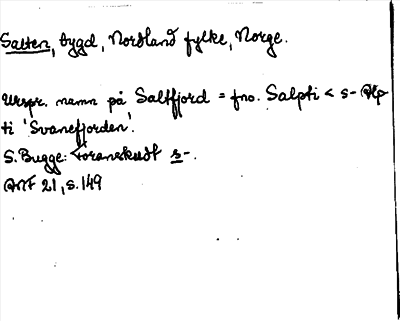 Salten, bygd, Nordland fylke, Norge.
Urspr. namn på Saltfjord = fno. Salpti < s- Alp
ti 'Svanefjorden'.
S. Bugge: Föranskudt s-.
ANF 21, s. 149